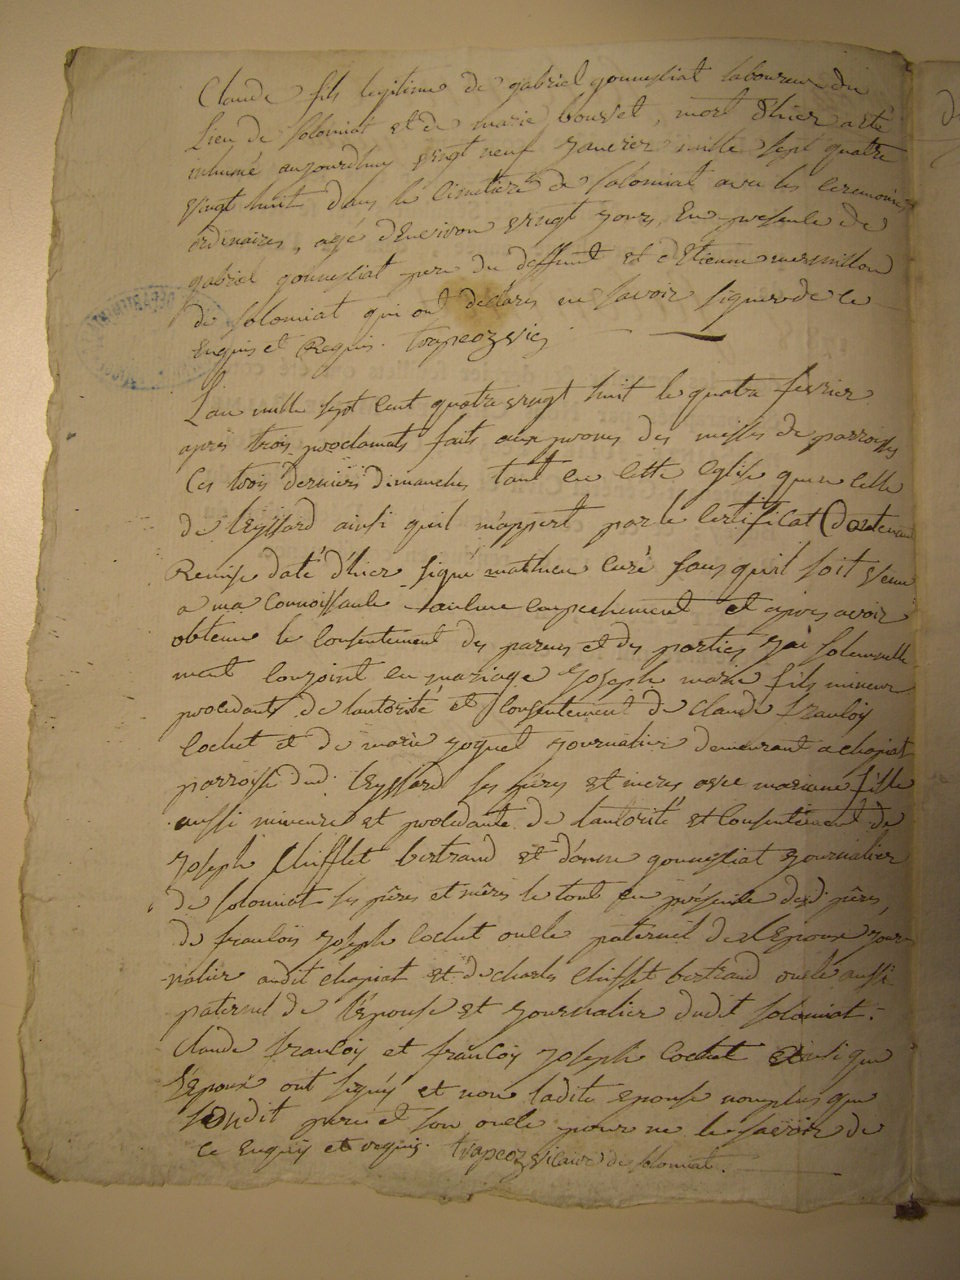 Claude fils legitime de gabriel gouneyliat laboureur du
Lieu de solomiat et de marie bouvet, mort d'hier a été
inhumé aujourdhuy vingt neuf janvier mille sept quatre
vingt huit dans le cimetière de solomiat avec les ceremonies
ordinaires, agé d'environ vingt jours, En presence de
gabriel gouneyliat pere du deffunt et d'Etienne mermillon
de solomiat qui ont declarés ne savoir signer de ce
Enquis et Requis. trapeoz vic
L'an mille sept cent quatre vingt huit le quatre fevrier
après trois proclamats faits aux prones des messes de parroisse
Ces trois derniers dimanches tant en cette Eglise qu'en celle
de leyssard ainsi quil m'appert par le Certificat
Remise daté d'hier signé mathieu curé sans qu'il soit venu
a ma connoissance aucune empechement et après avoir
obtenu le consentement des parens et des parties j'ai solemnelle
ment conjoint en mariage Joseph marie fils mineur
procedant de l'autorité et consentement de claude françois
Cochet et de marie joquet journalier demeurant a chapiat
parroisse dud. leyssard ses pères et meres avec mariane fille
aussi mineure et procedante de l'autorité et consentement de
Joseph Chifflet bertrand et d'anne gouneyliat journalier
de solomiat ses pères et mères le tout en présence desd. pères,
de françois Joseph Cochet oncle paternel de l'Epoux jour-
nalier audit chapiat et de charles chifflet bertrand oncle aussi
paternel de l'épouse et journalier dudit solomiat.
Claude françois et françois Joseph Cochet Ainsi que
l'Epoux ont signés et non ladite epouse nonplus que
sondit pere et son oncle pour ne le savoir de
ce Enquis et requis. trapeoz vicaire de solomiat.